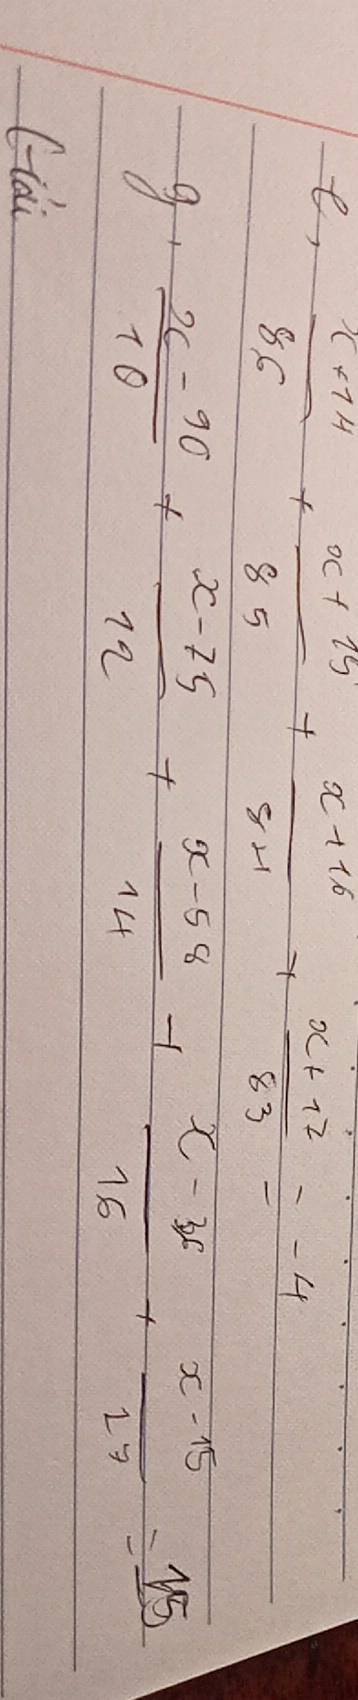 e, x+14/86 + x+15/85 + x+16/84 + x+17/83 = -4
g, x-90/10 + x-75/12 + x-58/14 + x-36/16 + x-15/17 = 15
Giải